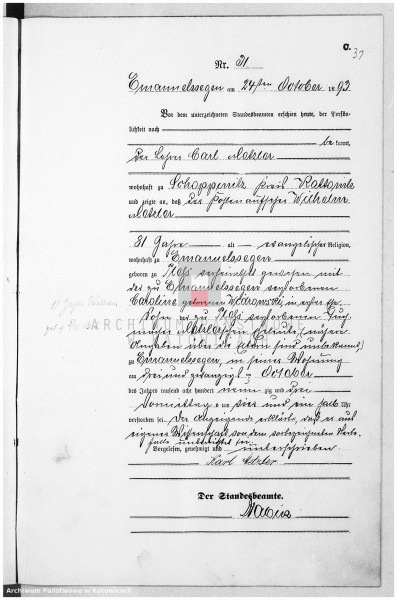 C.
31
Nr. 31
Emanuelssegen am 24ten October 1893.
Vor dem unterzeichneten Standesbeamten erschien heute, der Persön-
lichkeit nach
be kannt,
der Lehrer Carl Metzler
wohnhaft zu Schoppinitz Kreis Kattowitz
und zeigte an, daß der Wilhelm
Metzler
31 Jahre alt evangelischer Religion,
wohnhaft zu Emanuelssegen
geboren zu Pleß verheirathet gewesen mit
der zu Emanuelssegen verstorbenen
Caroline geborenen
Sohn der zu Pleß verstorbenen
Metzler'schen Eheleute (nähere
Angaben über die Eltern sind unbekannt)
zu Emanuelssegen, in seiner Wohnung
am drei und zwanzigsten October
des Jahres tausend acht hundert neun zig und drei
Vormittags um vier und ein halb Uhr
verstorben sei. Der Anzeigende erklärte, daß er aus
eigener Wissenschaft von dem vorbezeichneten Sterbe-
falle unterrichtet sei.
Vorgelesen, genehmigt und unterschrieben
Karl Metzler
Der Standesbeamte.
ARCHIWUM PAŃSTWOWE
Archiwum Państwowe w Katowicach